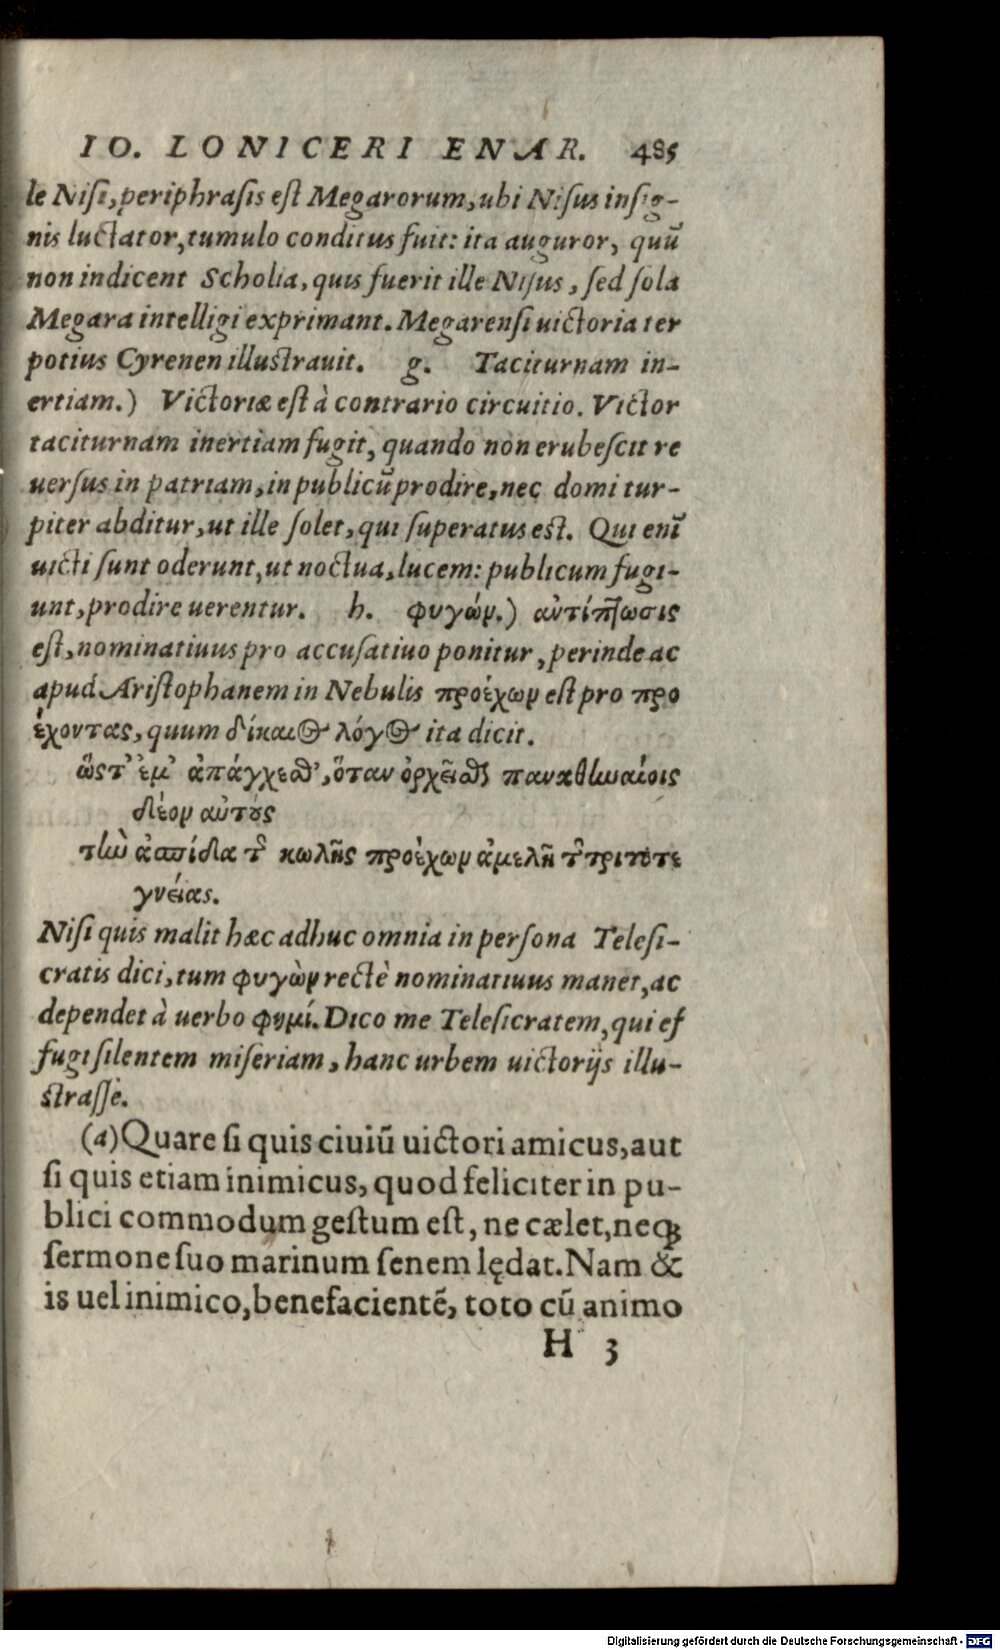 IO. LONICERI ENAR. 485
le Nisi, periphrasis est Megarorum, ubi Nisus insig-
nis luctator, tumulo conditus fuit: ita auguror, quũ
non indicent Scholia, quis fuerit ille Nisus, sed sola
Megara intelligi exprimant. Megarensi uictoria ter
potius Cyrenen illustrauit. g. Taciturnam in-
ertiam.) Victoriæ est à contrario circuitio. Victor
taciturnam inertiam fugit, quando non erubescit re
uersus in patriam, in publicũ prodire, nec domi tur-
piter abditur, ut ille solet, qui superatus est. Qui enĩ
uicti sunt oderunt, ut noctua, lucem: publicum fugi-
unt, prodire uerentur. h. φυγών.) ἀντίπτωσις
est, nominatiuus pro accusatiuo ponitur, perinde ac
apud Aristophanem in Nebulis προέχων est pro προ
έχοντας, quum δίκαιος λόγος ita dicit.
ὥστ' ἐμ' ἀπάγχεσθ', ὅταν ὀρχεῖσθαι παναθηναίοις
δέον αὐτοὺς
τὴν ἀσπίδα τῆς κωλῆς προέχων ἀμελῆ τῆς τριτοτε
γνείας.
Nisi quis malit hæc adhuc omnia in persona Telesi-
cratis dici, tum φυγὼν rectè nominatiuus manet, ac
dependet à uerbo φημί. Dico me Telesicratem, qui ef
fugi silentem miseriam, hanc urbem uictorijs illu-
strasse.
(a) Quare si quis ciuiũ uictori amicus, aut
si quis etiam inimicus, quod feliciter in pu-
blici commodum gestum est, ne cælet, neq;
sermone suo marinum senem lędat. Nam &
is uel inimico, benefacientẽ, toto cũ animo
H 3
Digitalisierung gefördert durch die Deutsche Forschungsgemeinschaft - DFG